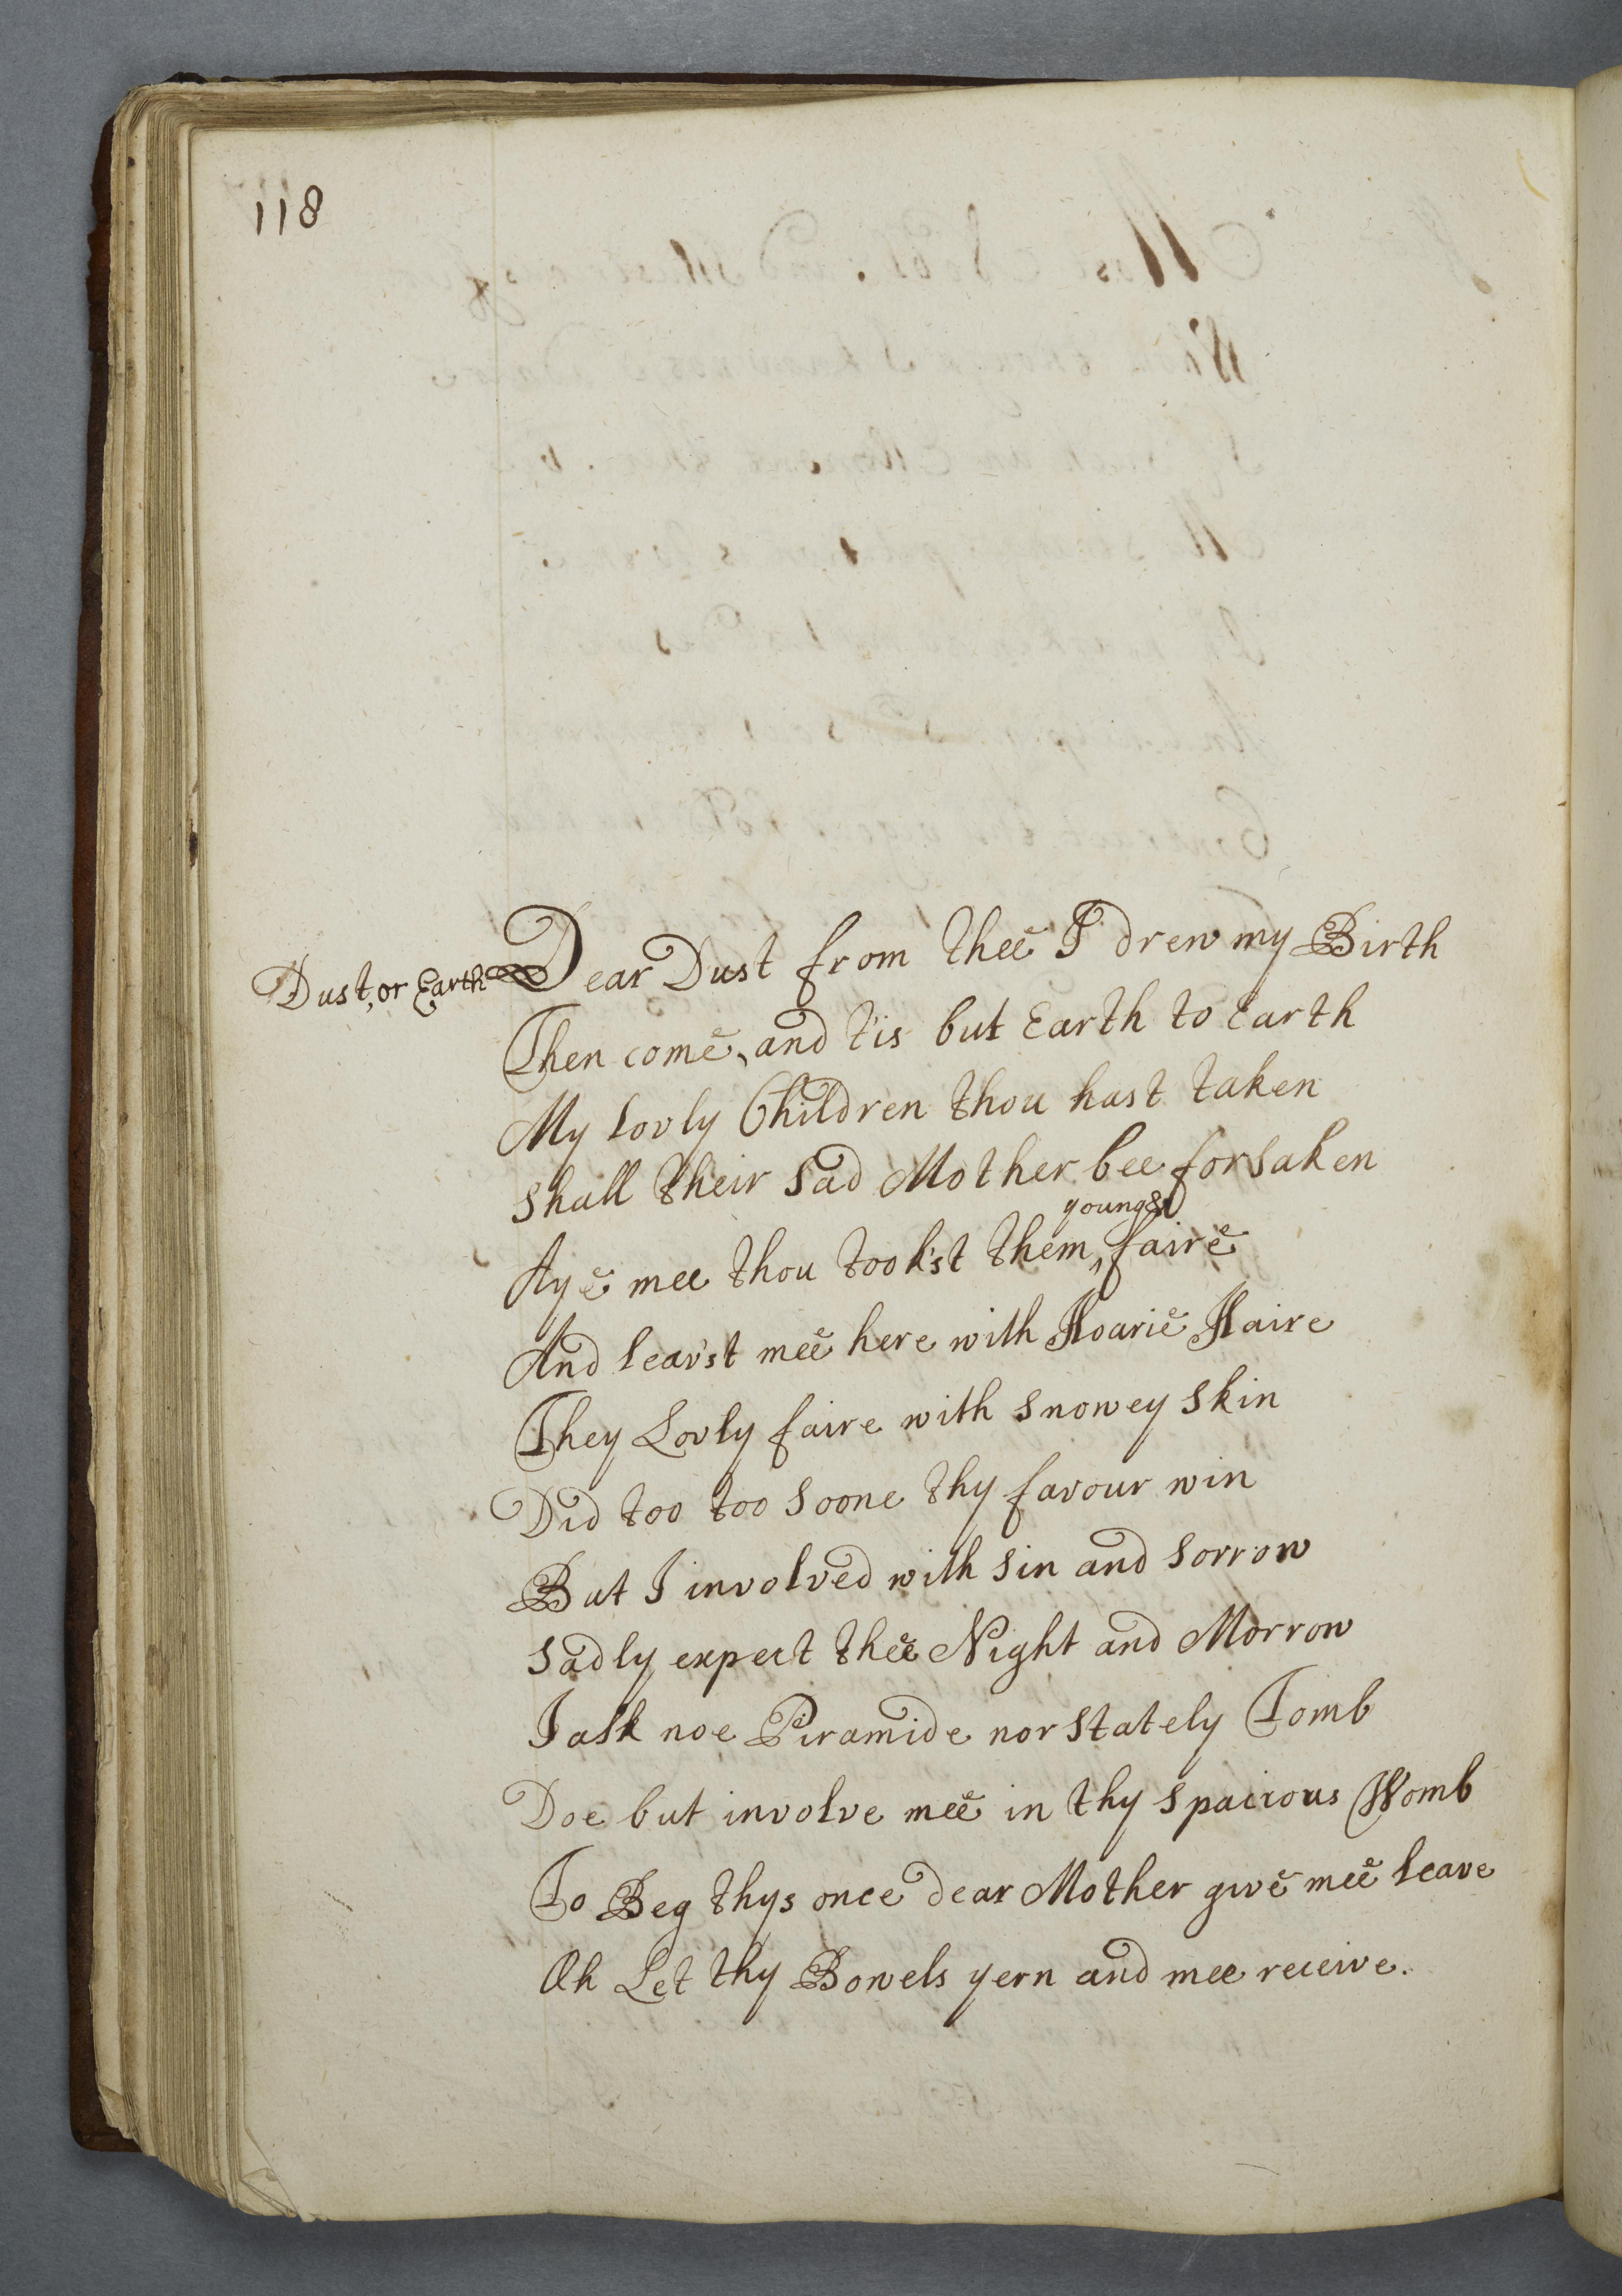 118
Dust, or Earth
Dear Dust from thee I drew my Birth
Then come, and t'is but Earth to Earth
My Lovly Children thou hast taken
Shall their Sad Mother bee forsaken
Aye mee thou took'st them young & faire
And leav'st mee here with Hoarie Haire
They Lovly faire with snowey skin
Did too too soone thy favour win
But I involved with sin and sorrow
Sadly expect thee Night and Morrow
I ask noe Piramide nor stately Tomb
Doe but involve mee in thy spacious Womb
To Beg thys once dear Mother give mee leave
Oh Let thy Bowels yern and mee receive.